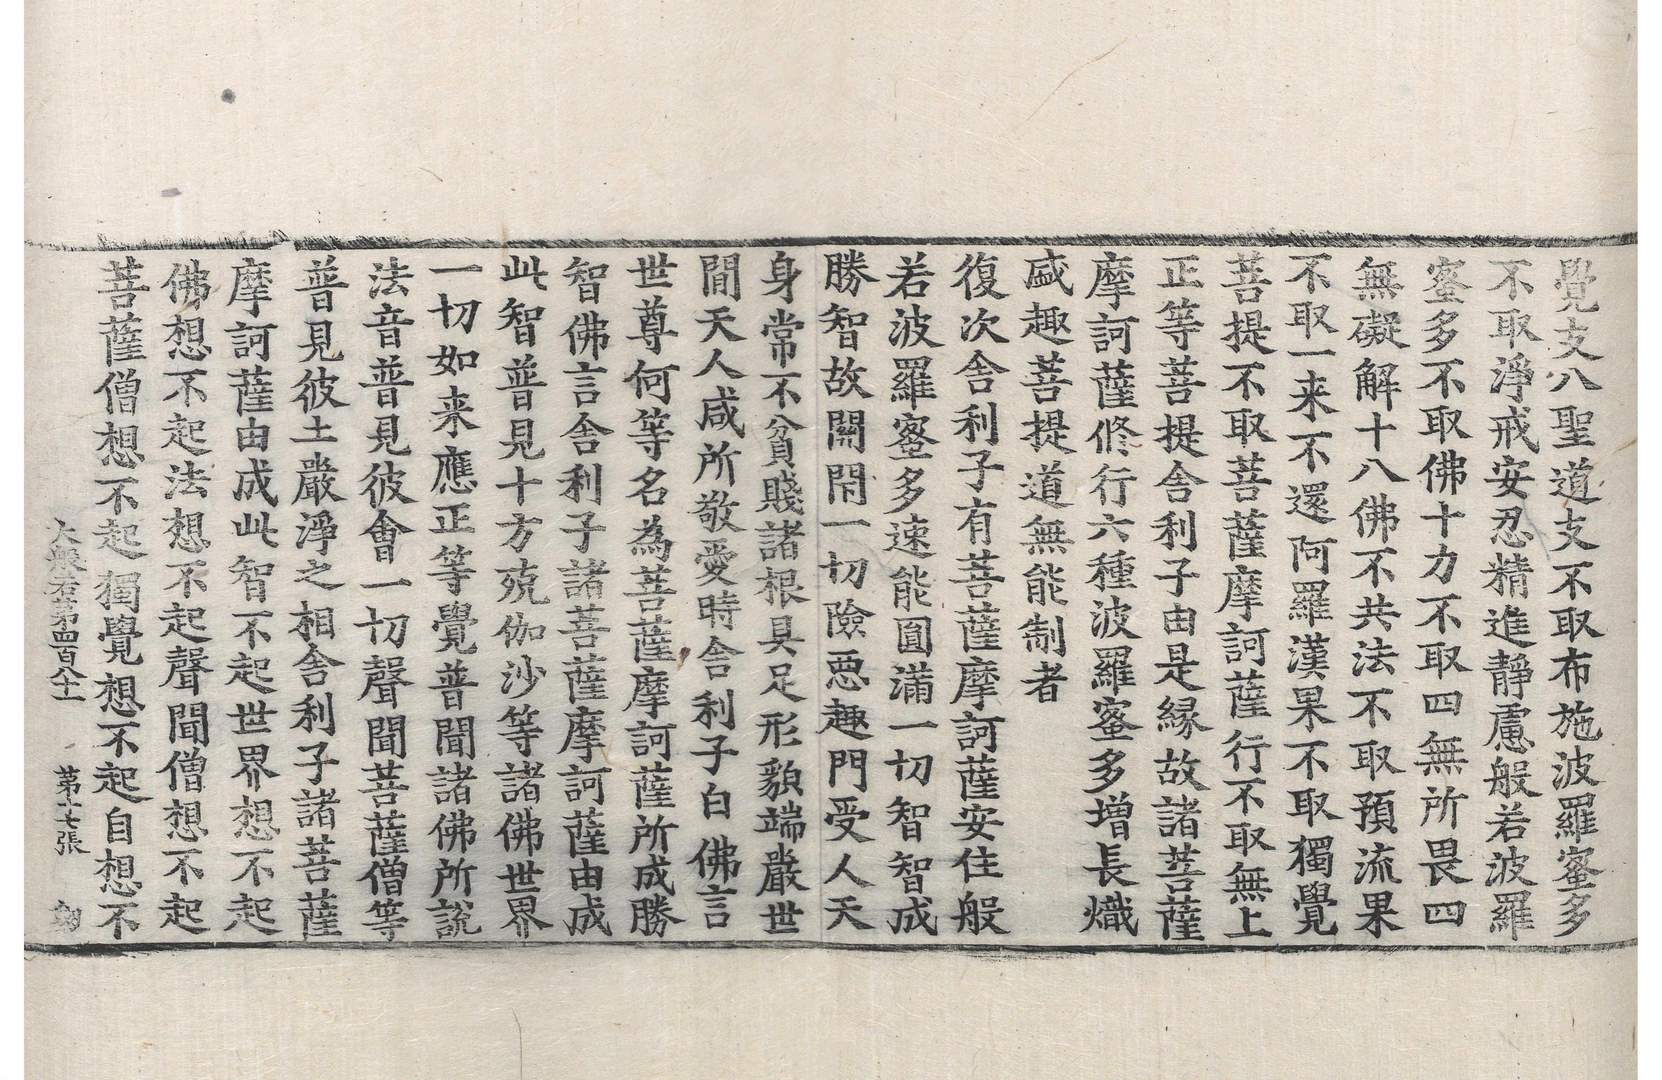 覺支八聖道支不取布施波羅蜜多
不取淨戒安忍精進靜慮般若波羅
蜜多不取佛十力不取四無所畏四
無礙解十八佛不共法不取預流果
不取一来不還阿羅漢果不取獨覺
菩提不取菩薩摩訶薩行不取無上
正等菩提舍利子由是緣故諸菩薩
摩訶薩修行六種波羅蜜多增長熾
盛趣菩提道無能制者
復次舍利子有菩薩摩訶薩安住般
若波羅蜜多速能圓滿一切智智成
勝智故關閇一切險惡趣門受人天
身常不貧賤諸根具足形貌端嚴世
間天人咸所敬愛時舍利子白佛言
世尊何等名為菩薩摩訶薩所成勝
智佛言舍利子諸菩薩摩訶薩由成
此智普見十方殑伽沙等諸佛世界
一切如来應正等覺普聞諸佛所說
法音普見彼會一切聲聞菩薩僧等
普見彼土嚴淨之相舍利子諸菩薩
摩訶薩由成此智不起世界想不起
佛想不起法想不起聲聞僧想不起
菩薩僧想不起獨覺想不起自想不
大般若第四百八十一 第十七張